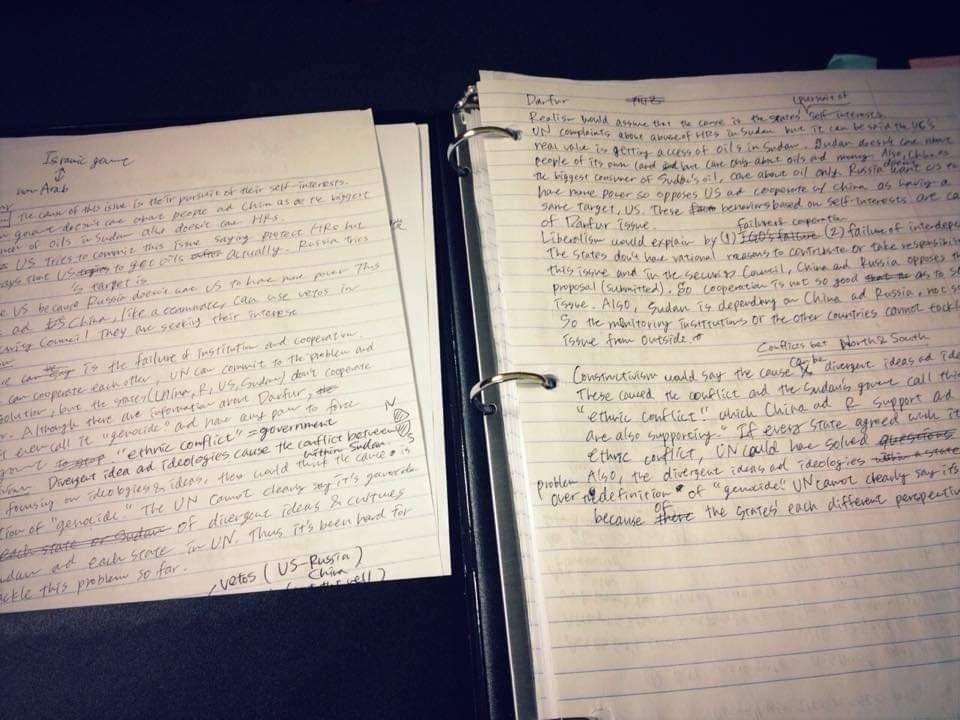 Islamic govnt
non Arab
The cause of this issue is their pursuit of their self-interests.
govnt doesn't care about people ad China as as the biggest
of oils in Sudan also doesn't care HRs.
US Tries to commit this issue saying protect HRs but
that US to get oils actually. Russia tries
's target is
US because Russia doesn't want US to have more power This
ad China, like a communance, can use vetos in
Council They are seeking their interese
is the failure of institution and cooperation.
can cooperate each other, UN can commit to the problem and
solution, but the states (China, R, US, Sudan) don't cooperate
Although there are information about Darfur,
even call it "genocide" ad have any power to force
govnt to stop "ethnic conflict" = government
N
Divergent idea ad ideologies cause the conflict between
within Sudan
S
focusing on ideologies & ideas, they would the cause is
of "genocide." The UN cannot clearly say it's
each state or Sudan of divergent ideas & cultures
ad each state in UN. Thus it's been hard for
tackle this problem so far.
vetos (US-Russia)
China
Darfur
pursuit of
Realism would assume that the cause is the states' self-interests.
UN complaints about abuse of HRs in Sudan but it can be said the US's
real value is getting access of oils in Sudan. Sudan doesn't care
people of its own land but care only about oils ad money. Also China as
the biggest consumer of Sudan's oil, care about oil only. Russia want US to
doesn't
have more power so opposes US ad cooperate w/ China as having a
same target, US. These behaviors based on self-interests are
of Darfur issue.
failures cooperation
Liberalism would explain by (1) IGO's failure (2) failure of
The states don't have rational reasons to contribute or take
this issue and in the security Council, China and Russia opposes
proposal (submitted). So cooperation is not so good that to as to
issue. Also, Sudan is depending on China ad Russia, not
So the monitoring institutions or the other countries cannot
issue from outside.
Conflicts bet North & South
can be
Constructivism would say the cause divergent ideas ad
These caused the conflict and the Sudan's govnt call
"ethnic conflict" which China ad R support ad
are also supporting. If every state agreed with
ethnic conflict, UN could have solved questions
problem Also, the divergent ideas ad ideologies within a state
over the definition of "genocide" UN cannot clearly say it's
of
because there the states' each different